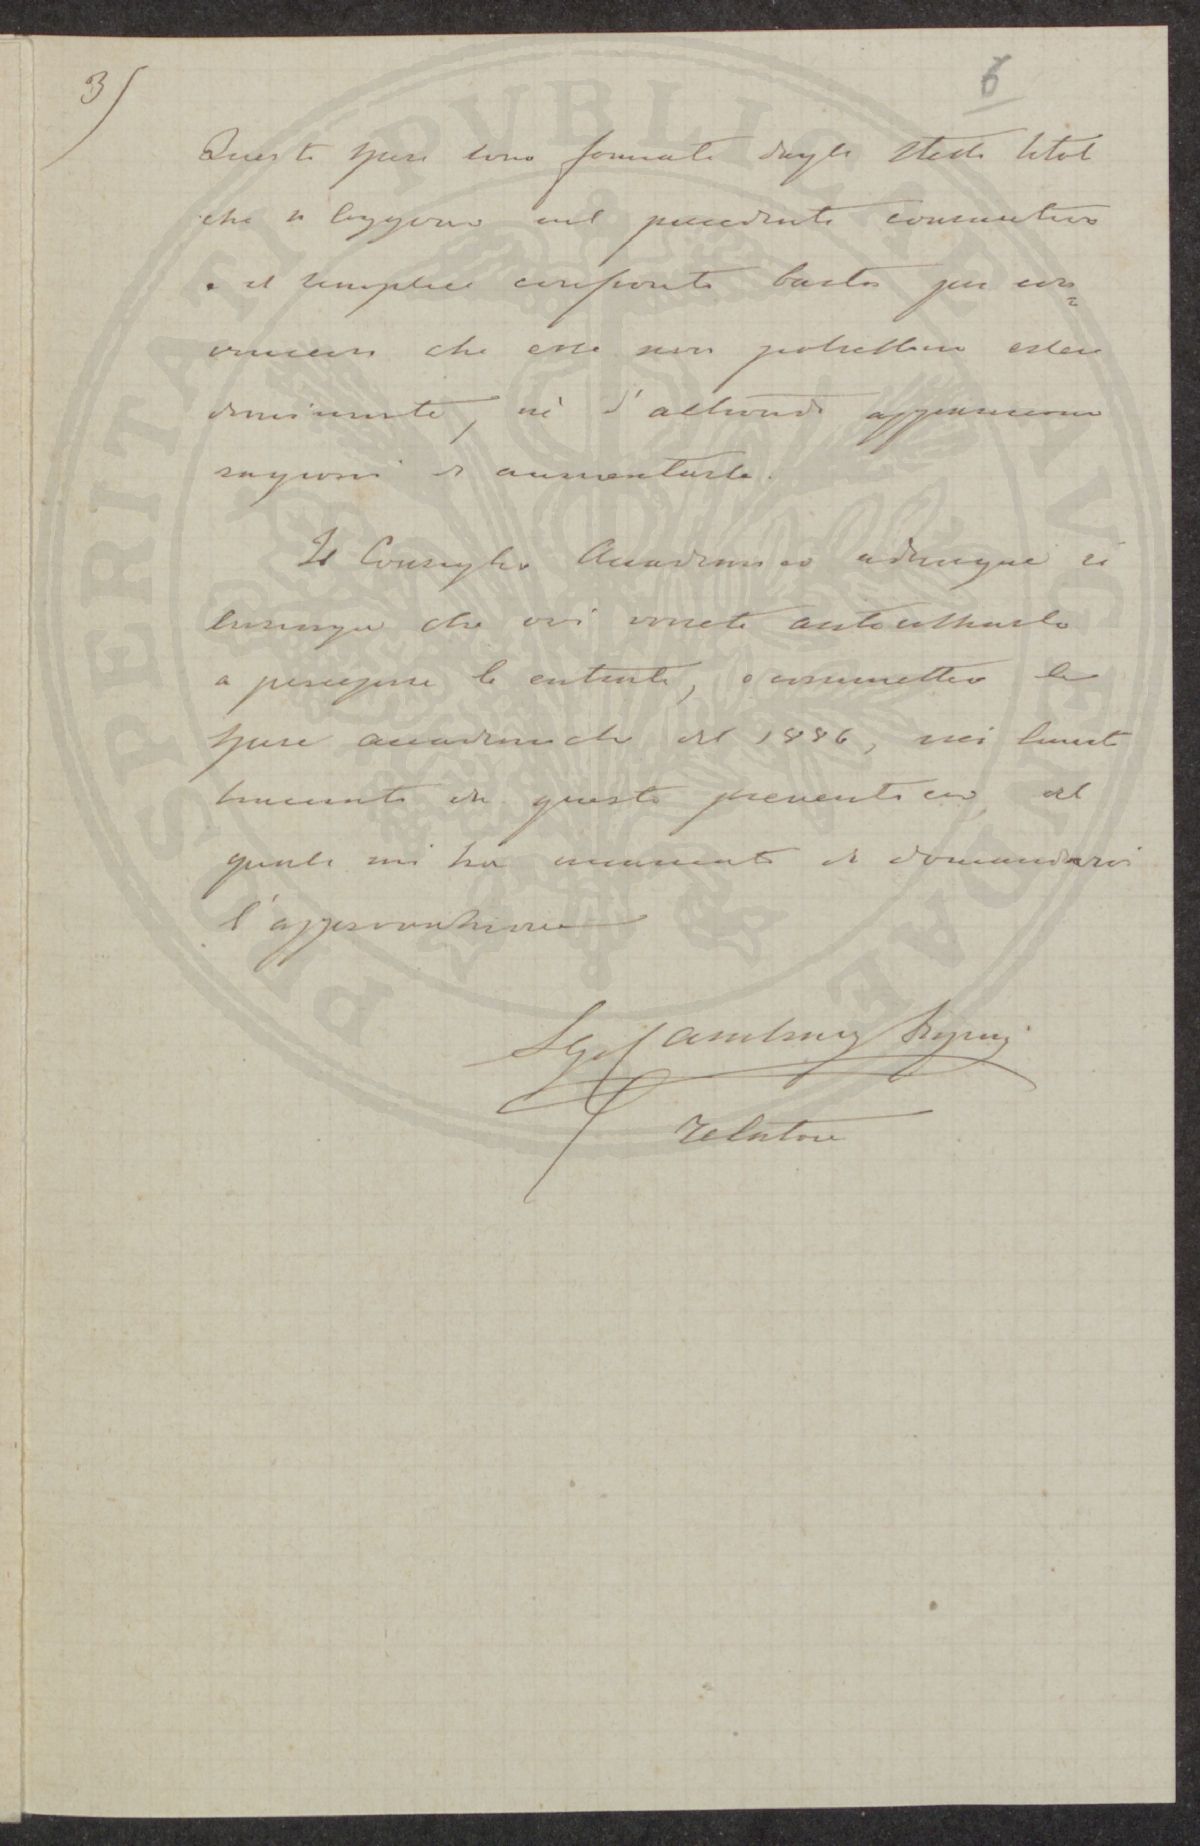 3)
6
Queste spese sono formate dagli stessi titoli
che si leggono nel precedente consuntivo
e il semplice confronto basta per con=
vincere che esse non potrebbero essere
diminuite, nè d'altronde appariscono
ragioni di aumentarle.
Il Consiglio Accademico adunque si
lusinga che voi vorrete autorizzarlo
a percepire le entrate, e commettere le
spese accademiche del 1886, nei limiti
tracciati da questo preventivo, del
quale mi ha incaricato di domandarvi
l'approvazione
Relatore
PROSPERITATI PVBLICAE AVGENDAE